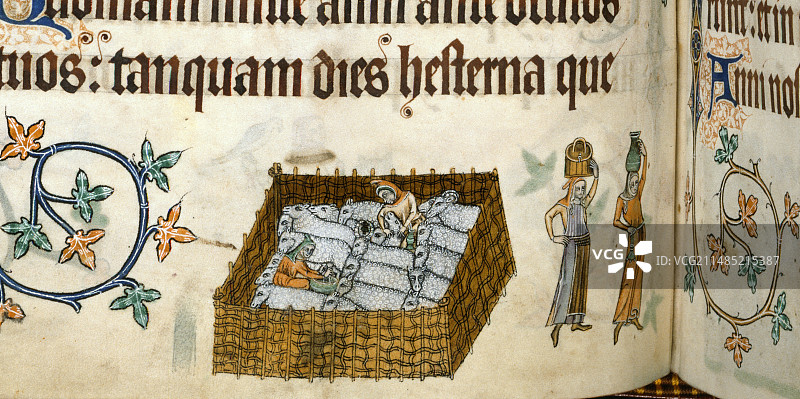 Quoniam mille anni ante oculos
tuos: tanquam dies hesterna que
Anni nos
VCG211485215387